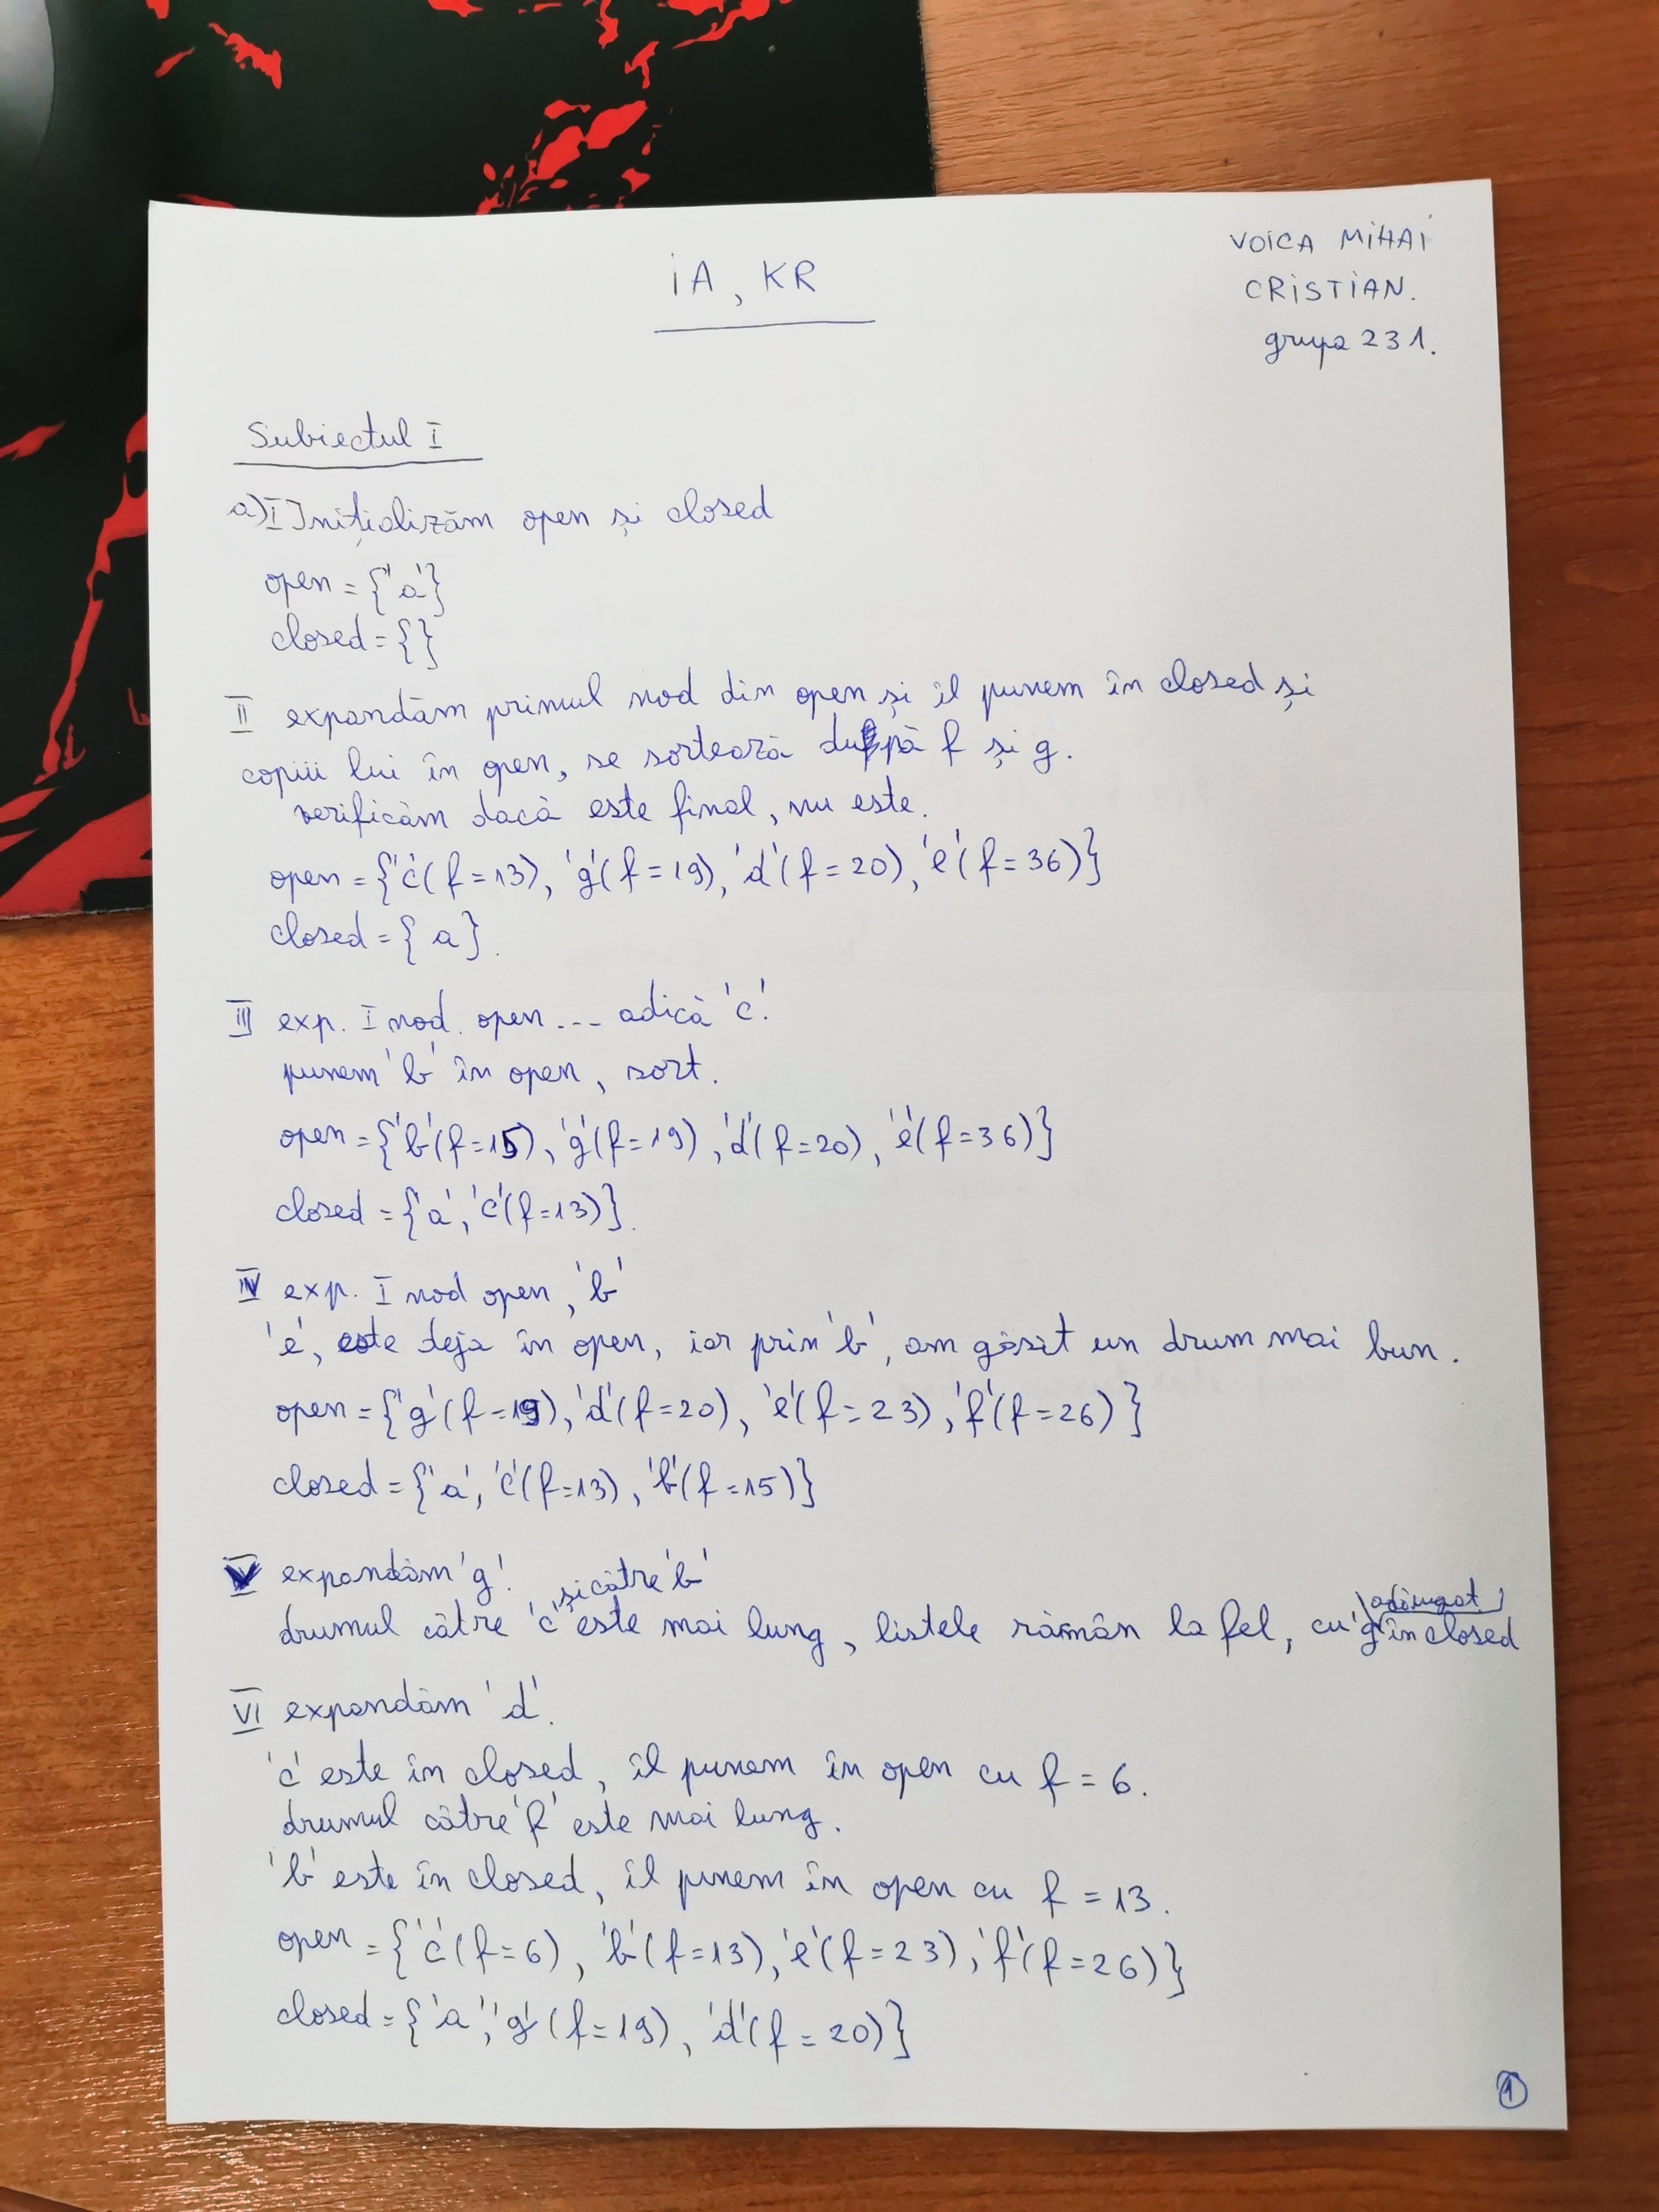 iA, KR
VOICA MIHAI
CRISTIAN.
grupa 231.
Subiectul I
a) I Inițializăm open și closed
open = {'a'}
closed = {}
II expandăm primul nod din open și îl punem în closed și
copiii lui în open, se sortează după f și g.
verificăm dacă este final, nu este.
open = {'c'(f=13), 'g'(f=19), 'd'(f=20), 'e'(f=36)}
closed = {a}.
III exp. I nod. open... adică 'c'.
punem 'b' în open, sort.
open = {'b'(f=15), 'g'(f=19), 'd'(f=20), 'e'(f=36)}
closed = {'a', 'c'(f=13)}.
IV exp. I nod open, 'b'
'e', este deja în open, iar prin 'b', am găsit un drum mai bun.
open = {'g'(f=19), 'd'(f=20), 'e'(f=23), 'f'(f=26)}
closed = {'a', 'c'(f=13), 'b'(f=15)}
V expandăm 'g'.
drumul către 'c' și către 'b' este mai lung, listele rămân la fel, cu 'g' adăugat în closed
VI expandăm 'd'.
'c' este în closed, îl punem în open cu f = 6.
drumul către 'f' este mai lung.
'b' este în closed, îl punem în open cu f = 13.
open = {'c'(f=6), 'b'(f=13), 'e'(f=23), 'f'(f=26)}
closed = {'a', 'g'(f=19), 'd'(f=20)}
1